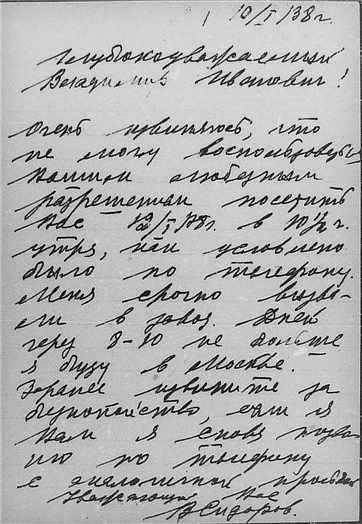 10/I/38г.
Глубокоуважаемый
Владимир Иванович!
Очень извиняюсь, что
не могу воспользоваться
Вашим любезным
разрешением посетить
Вас 12/I/38г. в 10½ г.
утра, как условлено
было по телефону.
Меня срочно вызва-
ли в завод. Дней
через 8-10 не больше
я буду в Москве.
Заранее извините за
беспокойство, если я
Вам я снова позво-
ню по телефону
с аналогичной просьбой
Уважающий Вас
В Сидоров.